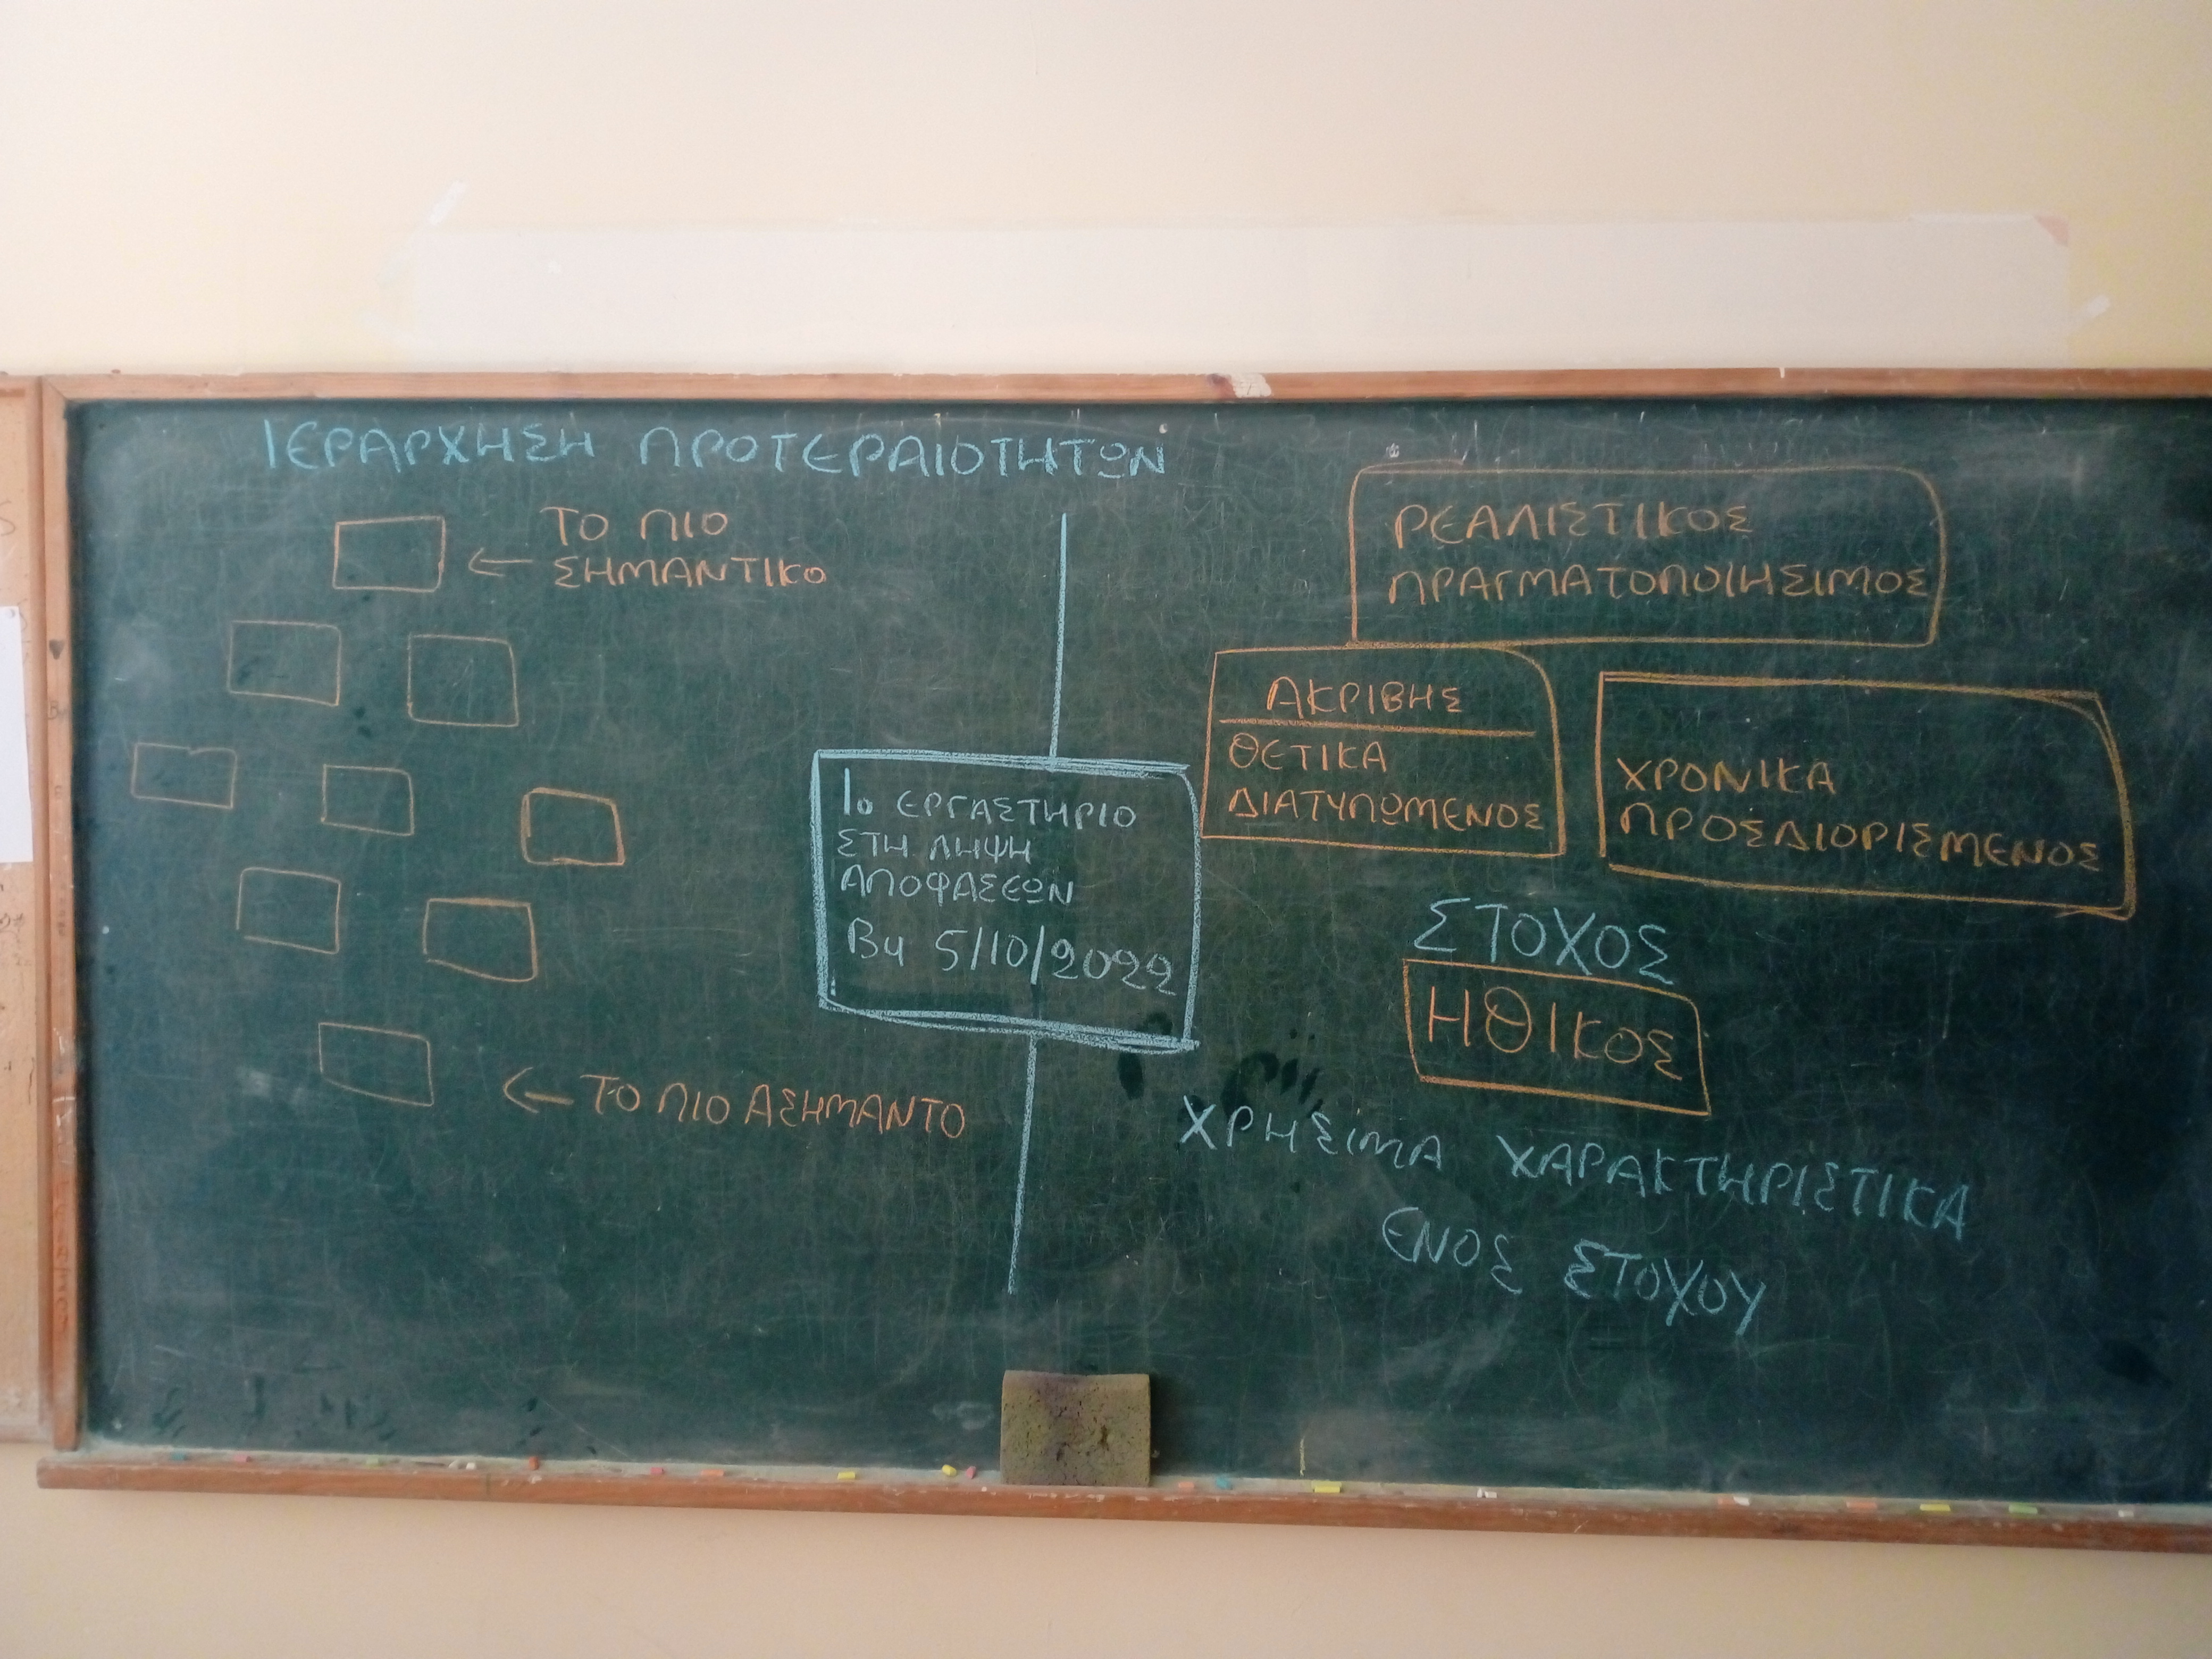 ΙΕΡΑΡΧΗΣΗ ΠΡΟΤΕΡΑΙΟΤΗΤΩΝ
ΤΟ ΠΙΟ
ΣΗΜΑΝΤΙΚΟ
ΤΟ ΠΙΟ ΑΣΗΜΑΝΤΟ
1ο ΕΡΓΑΣΤΗΡΙΟ
ΣΤΗ ΛΗΨΗ
ΑΠΟΦΑΣΕΩΝ
Β4 5/10/2022
ΡΕΑΛΙΣΤΙΚΟΣ
ΠΡΑΓΜΑΤΟΠΟΙΗΣΙΜΟΣ
ΑΚΡΙΒΗΣ
ΘΕΤΙΚΑ
ΔΙΑΤΥΠΩΜΕΝΟΣ
ΧΡΟΝΙΚΑ
ΠΡΟΣΔΙΟΡΙΣΜΕΝΟΣ
ΣΤΟΧΟΣ
ΗΘΙΚΟΣ
ΧΡΗΣΙΜΑ ΧΑΡΑΚΤΗΡΙΣΤΙΚΑ
ΕΝΟΣ ΣΤΟΧΟΥ